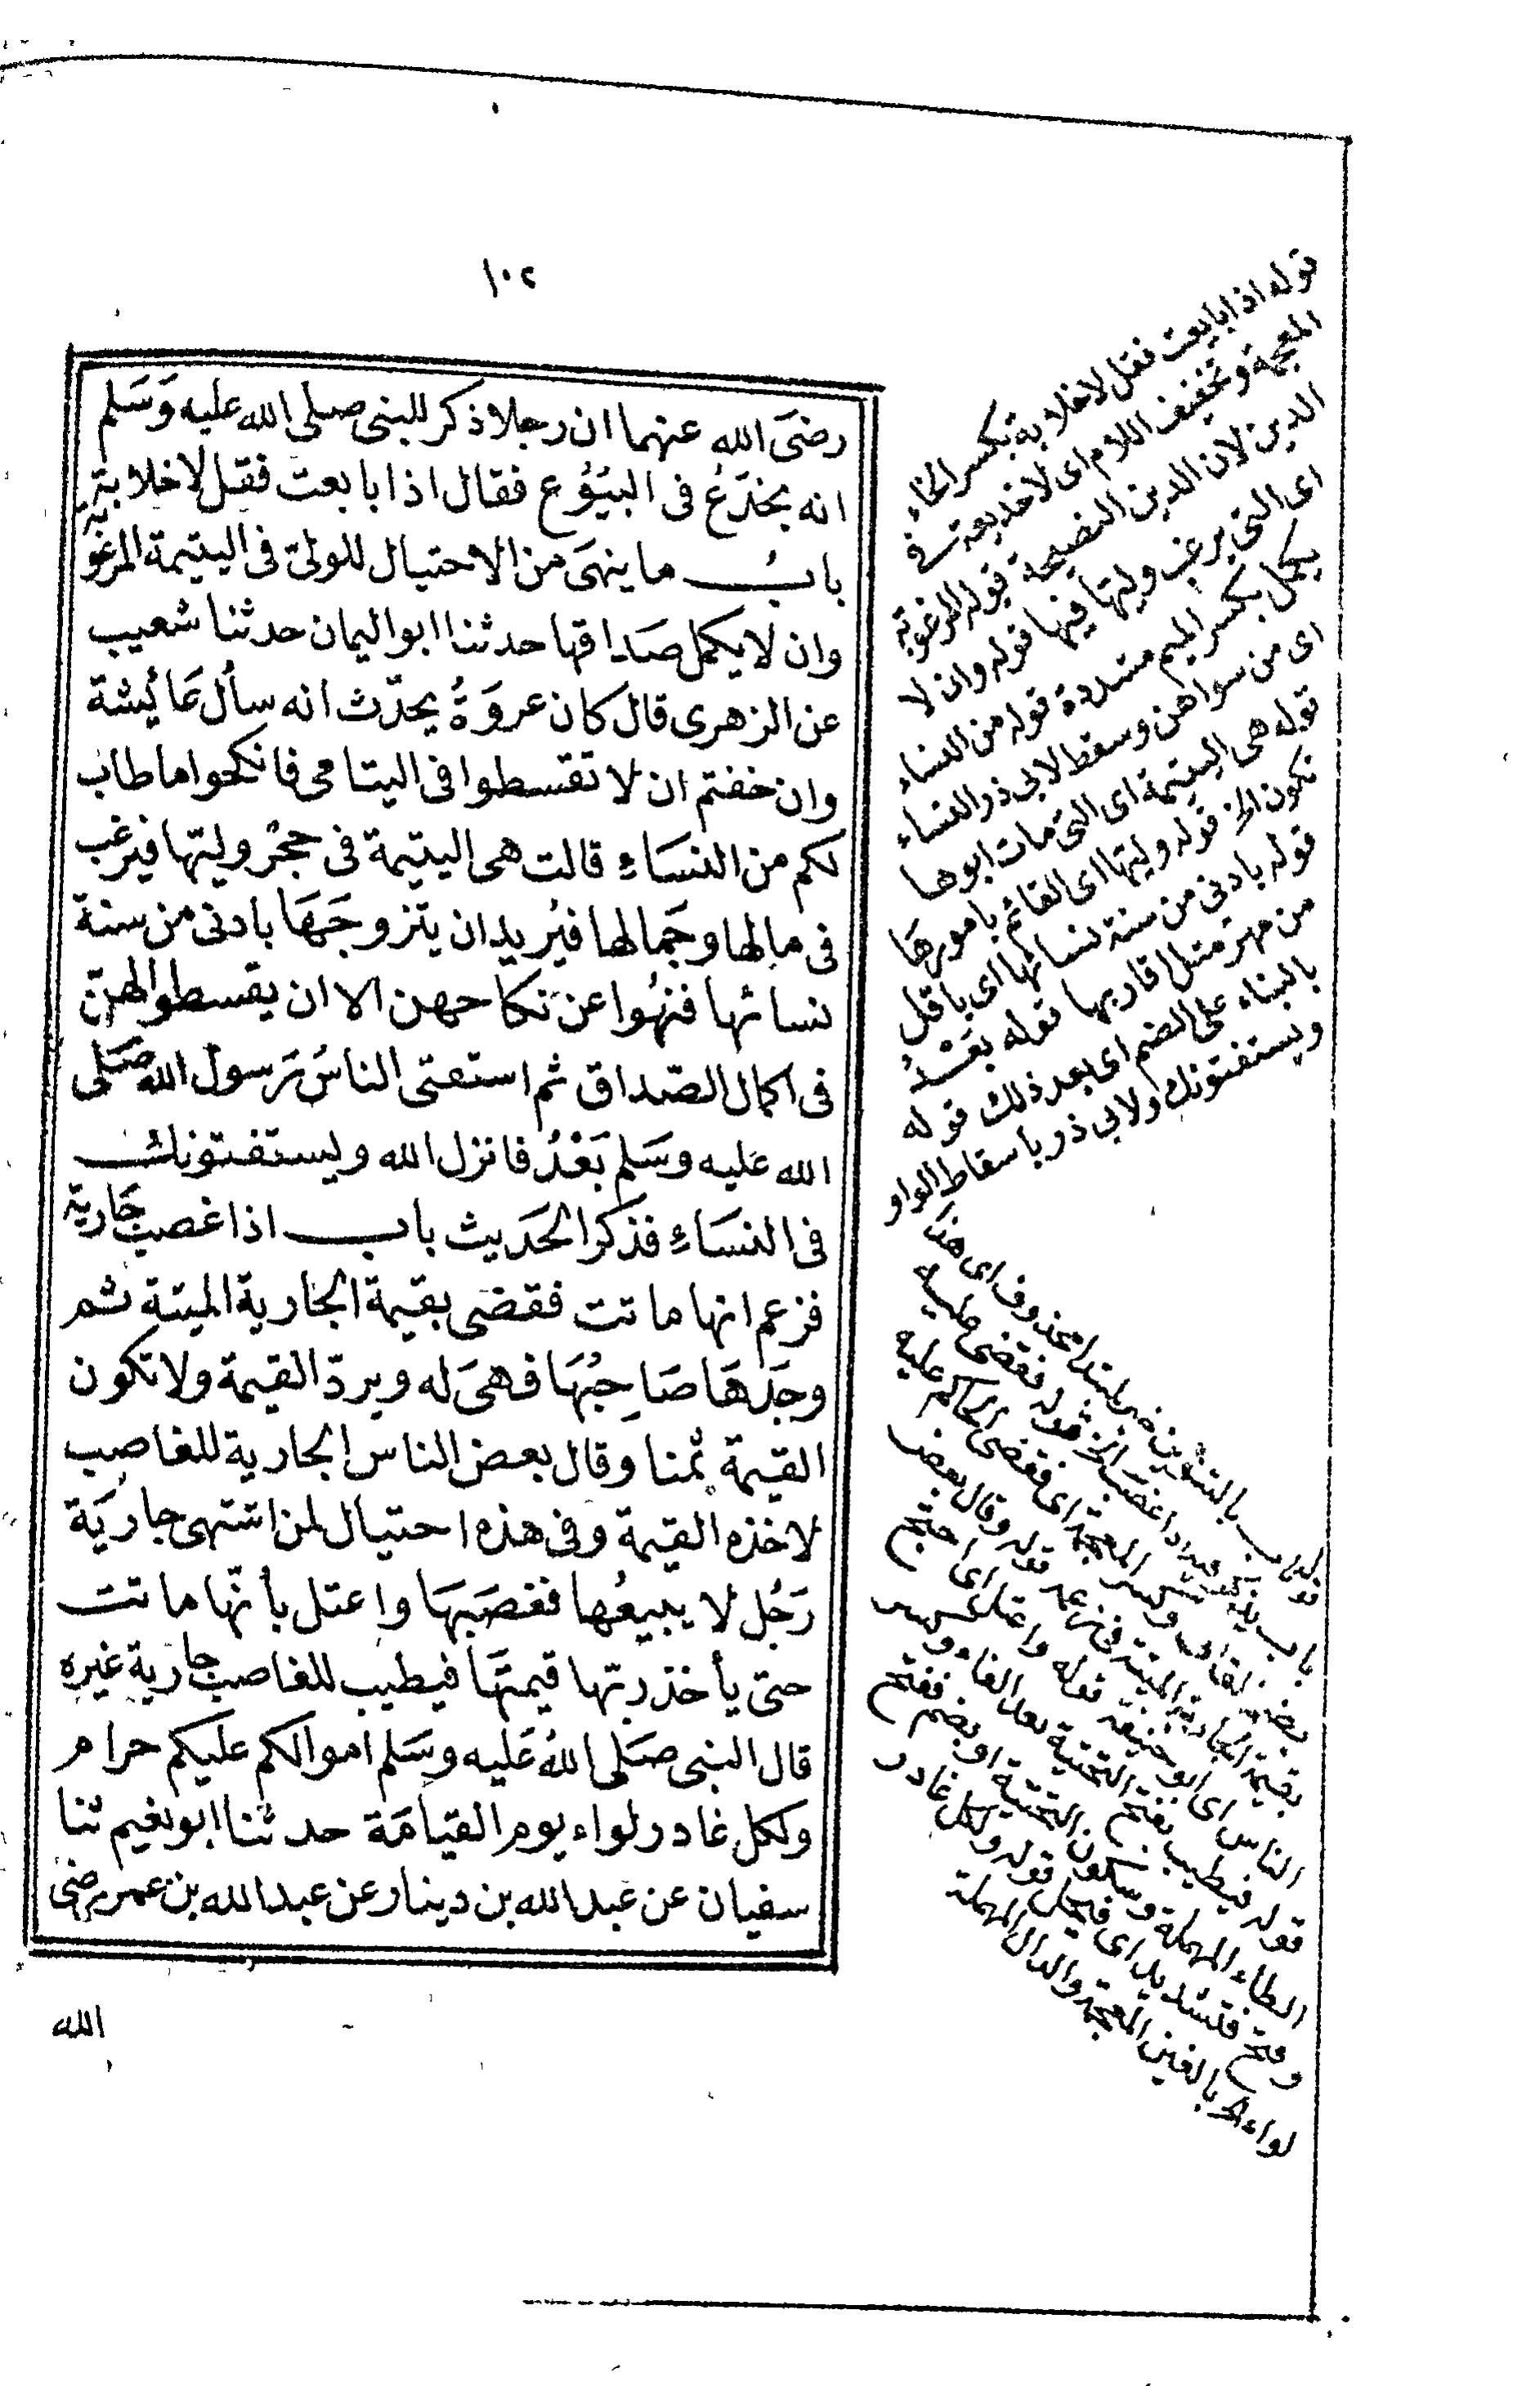 ١٠٢
رضى الله عنهما ان رجلا ذكر للنبى صلى الله عليه وسلم
انه يخدع فى البيوع فقال اذا بايعت فقل لا خلابة
باب ما ينهى من الاحتيال للولى فى اليتيمة المرغوبة
وان لا يكمل صداقها حدثنا ابو اليمان حدثنا شعيب
عن الزهرى قال كان عروة يحدّث انه سأل عائيشة
وان خفتم ان لا تقسطوا فى اليتامى فانكحوا ما طاب
لكم من النساء قالت هى اليتيمة فى حجر وليتها فيرغب
فى مالها وجمالها فيريد ان يتزوجها بادنى من سنة
نسائها فنهوا عن نكاحهن الا ان يقسطوا لهنّ
فى اكمال الصّداق ثم استفتى الناس رسول الله صلى
الله عليه وسلم بَعْدُ فانزل الله ويستفتونك
فى النساء فذكر الحديث باب اذا غصب جارية
فزعم انها ماتت فقضى بقيمة الجارية الميتة ثم
وجدها صاحبها فهى له ويردّ القيمة ولا تكون
القيمة ثمنا وقال بعض الناس الجارية للغاصب
لاخذه القيمة وفى هذه احتيال لمن اشتهى جارية
رجُل لا يبيعُها فغصبها واعتل بأنّها ماتت
حتى يأخذ ربّها قيمتها فيطيب للغاصب جارية غيره
قال النبى صلى الله عليه وسلم اموالكم عليكم حرام
ولكل غادر لواء يوم القيامة حدثنا ابو نعيم ثنا
سفيان عن عبد الله بن دينار عن عبد الله بن عمر رضى
الله
قوله اذا بايعت فقل لا خلابة بكسر الخاء
المعجمة وتخفيف اللام اى لا خديعة فى
الدين لان الدين النصيحة قوله المرغوبة
اى التى يرغب وليتها فيها قوله وان لا
يكمل بكسر الميم مشددة قوله من النساء
اى من سواهن وسقط لابى ذر النساء
قوله هى اليتيمة اى التى مات ابوها
تكون الخ قوله وليتها اى القائم بامورها
قوله بادنى من سنة نسائها اى باقل
من مهر مثل اقاربها قوله بَعْدُ
بالبناء على الضم اى بعد ذلك قوله
ويستفتونك ولابى ذر باسقاط الواو
قوله باب بالتنوين خبر لمبتدا محذوف اى هذا
باب يذكر فيه اذا غصب الخ قوله فقضى عليه
بضم القاف وكسر المعجمة اى فقضى الحاكم عليه
بقيمة الجارية الميتة فى زعمه قوله وقال بعض
الناس اى ابو حنيفة قوله واعتل اى احتج
قوله فيطيب بفتح التحتية بعد الفاء وكسر
الطاء المهملة وسكون التحتية او بضم ففتح
وفتح فتشديد اى فيحل قوله ولكل غادر
لواء الخ بالغين المعجمة والدال المهملة